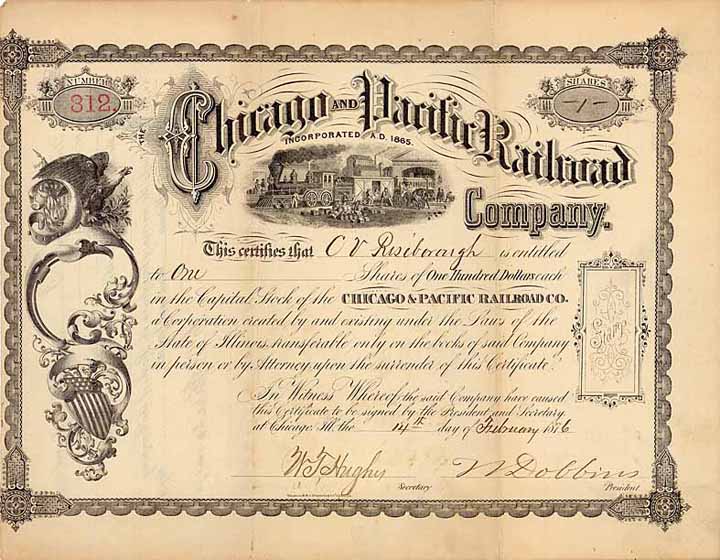 NUMBER
312.
SHARES
-1-
THE
Chicago AND Pacific Railroad
INCORPORATED A.D. 1865.
Company.
This certifies that C V Riseborough is entitled
to One Shares of One Hundred Dollars each
in the Capital Stock of the CHICAGO & PACIFIC RAILROAD CO.
a Corporation created by and existing under the Laws of the
State of Illinois, transferable only on the books of said Company
in person or by Attorney upon the surrender of this Certificate.
Stamp
In Witness Whereof, the said Company have caused
this Certificate to be signed by the President and Secretary
at Chicago, Ill. the 14th day of February 1876
W T Hughes
Secretary
Dobbins
President